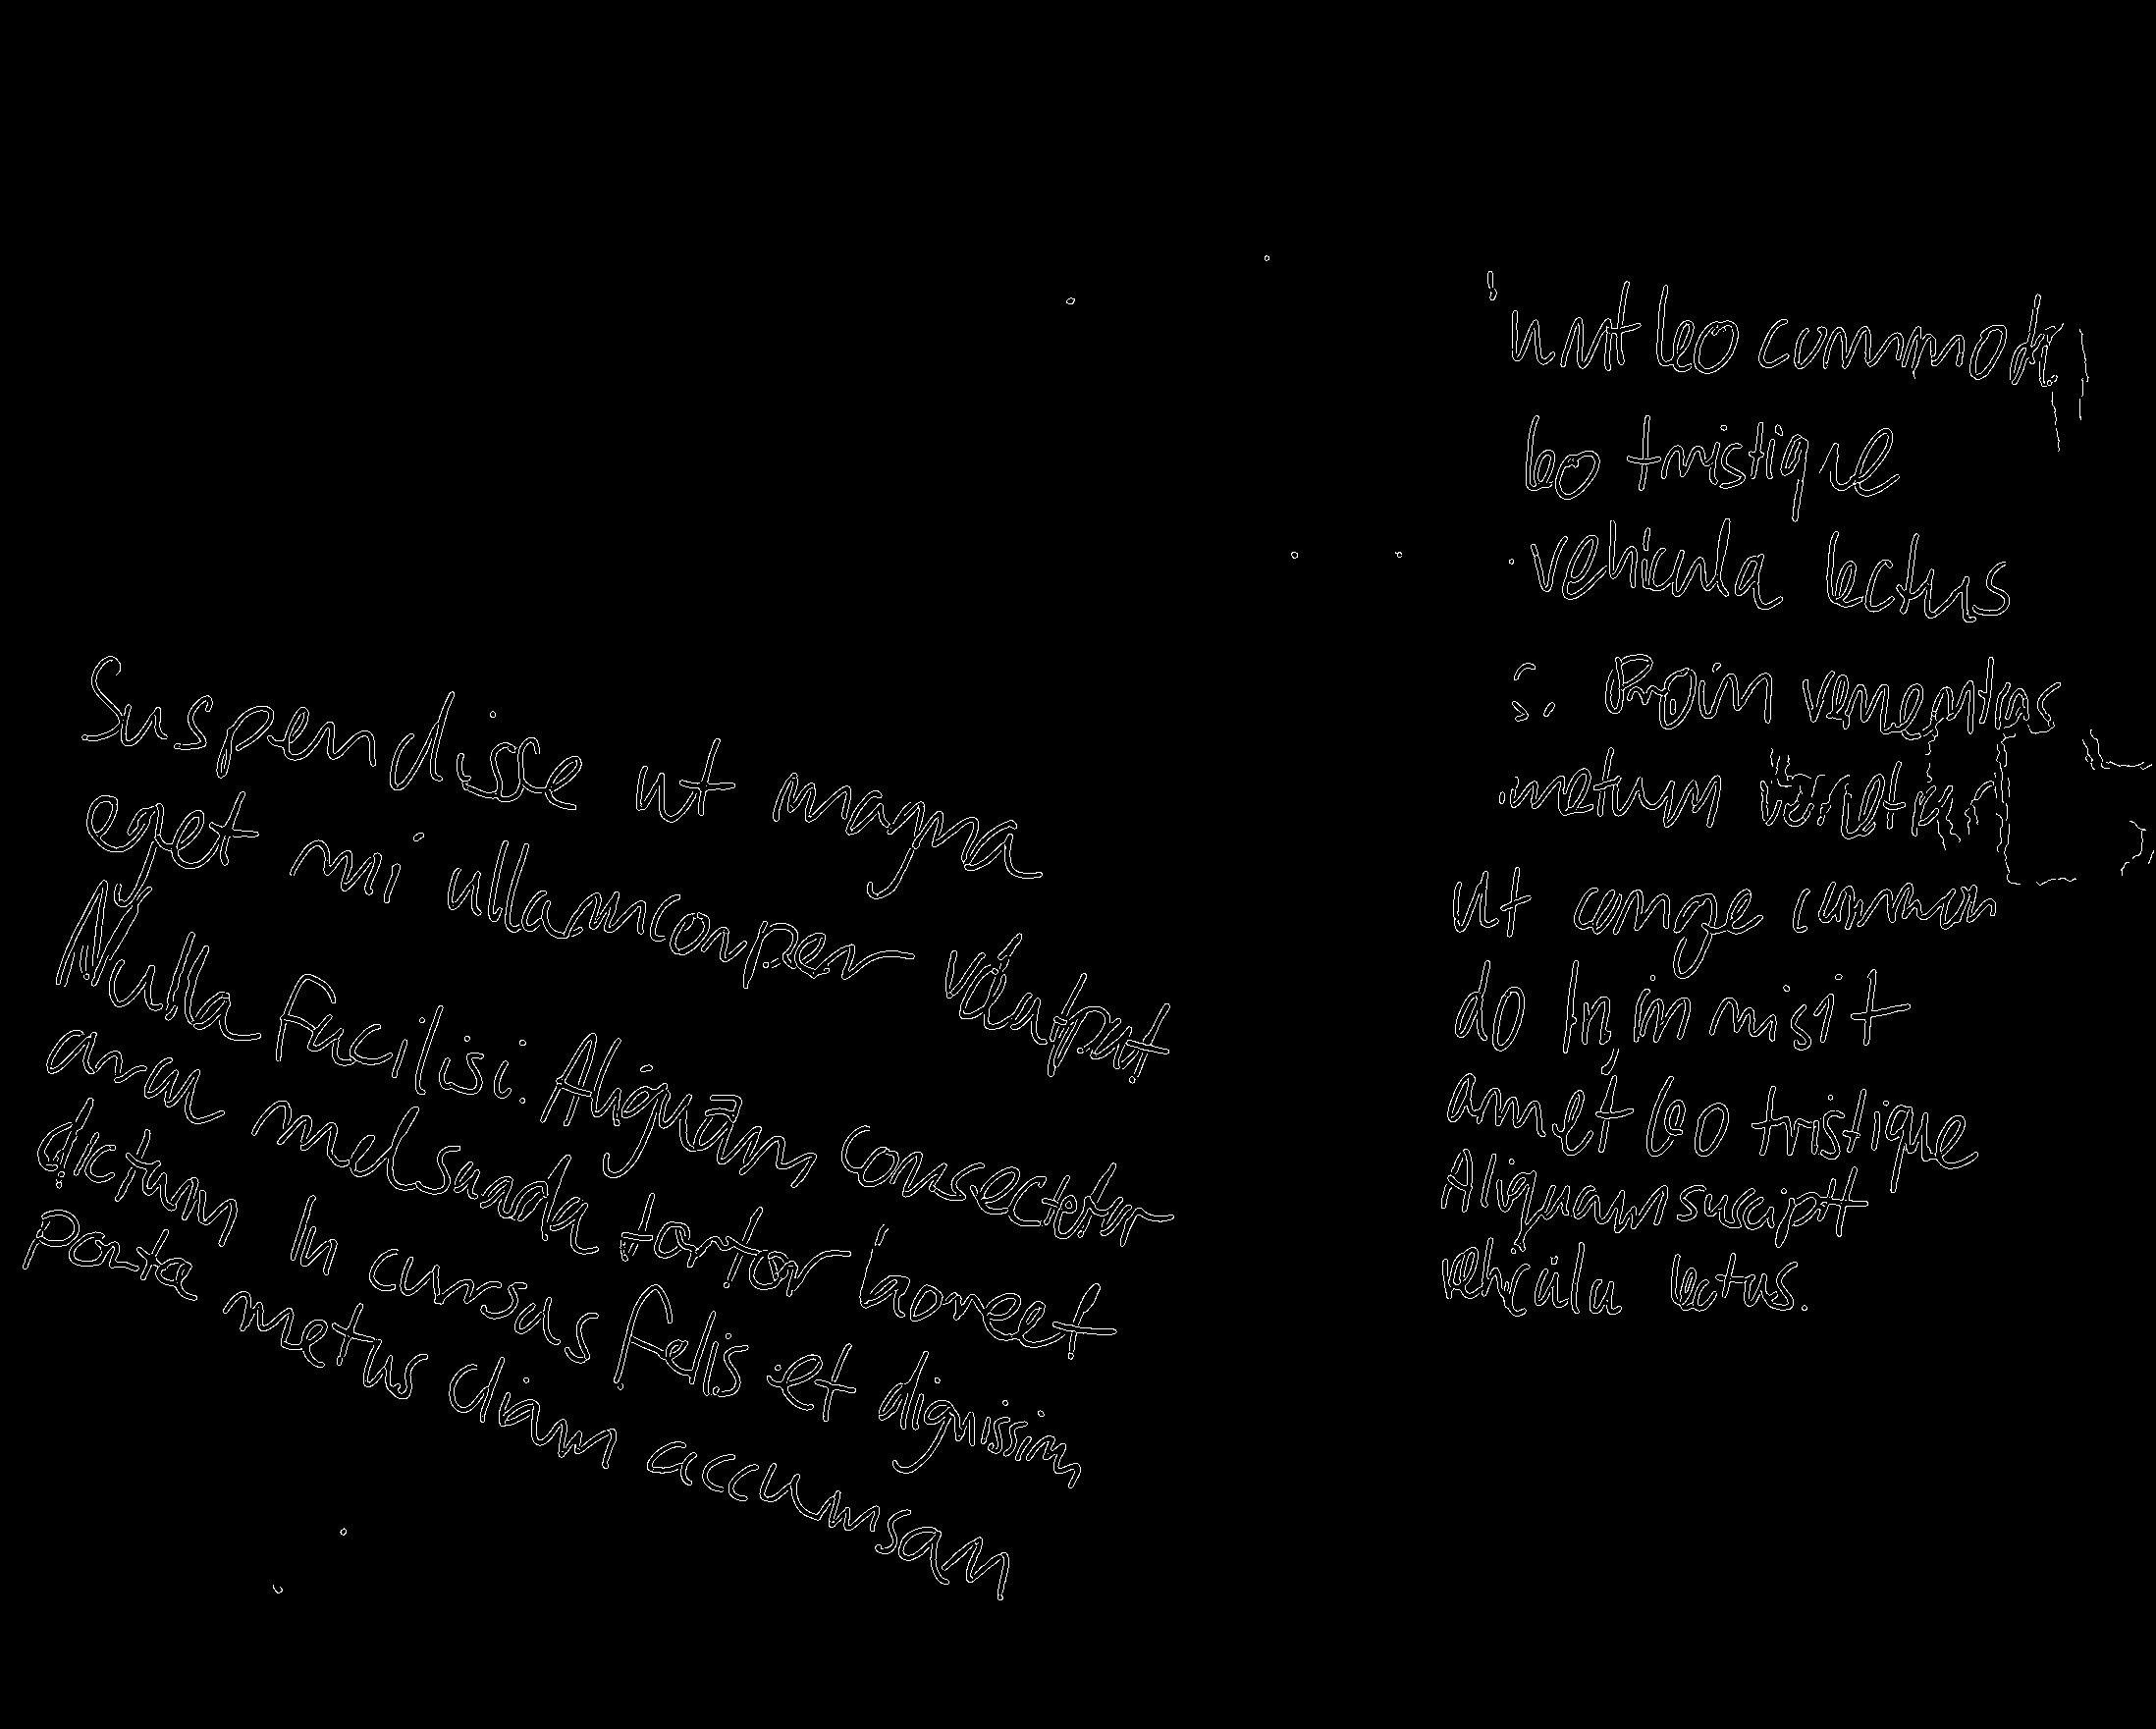 Suspendisse ut magna
eget mi ullamcorper volutpat
Nulla Facilisi. Aliquam consectetur
arcu melsuada tortor laoreet
dictum In cursus felis et dignissim
Porta metus diam accumsan
leo commodo
leo tristique
vehicula lectus
Proin
metum
Ut conge common
do In, in mi sit
amet leo tristique
Aliquam suscipit
vehicula lectus.